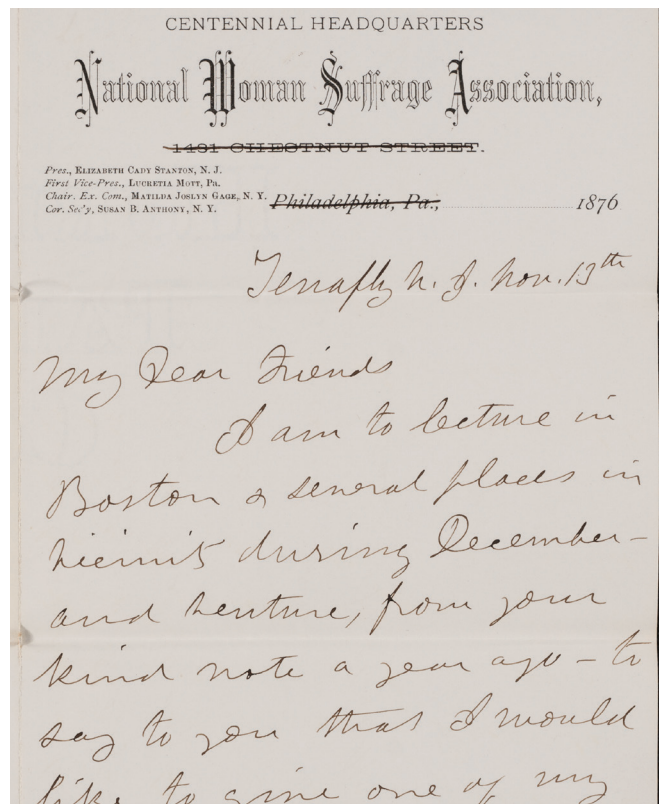 CENTENNIAL HEADQUARTERS
National Woman Suffrage Association,
1431 CHESTNUT STREET.
Pres., ELIZABETH CADY STANTON, N. J.
First Vice-Pres., LUCRETIA MOTT, Pa.
Chair. Ex. Com., MATILDA JOSLYN GAGE, N. Y.
Cor. Sec'y, SUSAN B. ANTHONY, N. Y.
Philadelphia, Pa., 1876
Tenafly N. J. Nov. 13th
My Dear Friends
I am to lecture in
Boston & several places in
vicinity during December –
and venture, from your
kind note a year ago – to
say to you that I would
like to give one of my